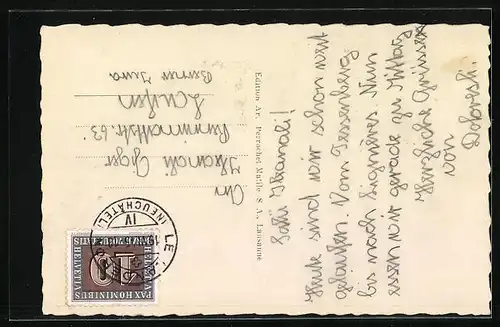 Salü Hanneli!
Heute sind wir schon weit
gelaufen. Vom Tessenberg
bis nach Lignières. Nun
essen wir gerade zu Mittag.
Herzliche Grüsse
von
Edition Ar. Perrochet Matile S. A., Lausanne
An
Hanneli
63
Laufen
Berner Jura
LE
(NEUCHATEL)
IV
HELVETIA
PAX HOMINIBUS
HELVETIA
10